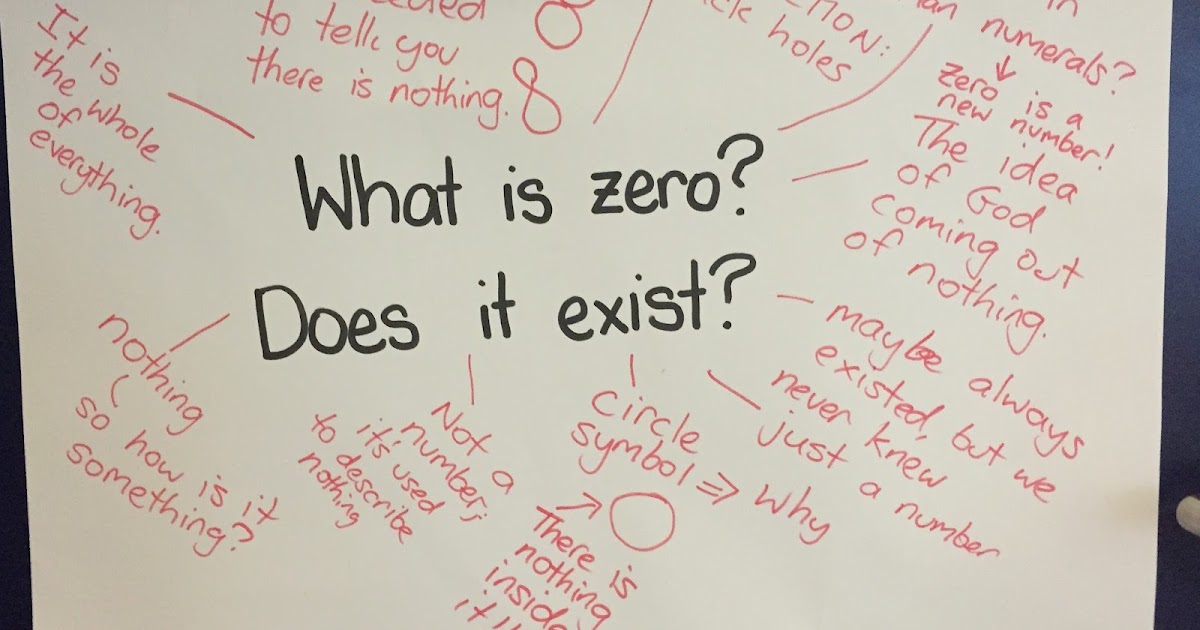 What is zero?
Does it exist?
It is
the whole
of
everything.
to tell you
there is nothing.
8
holes
numerals?
↓
zero is a
new number!
The idea
of God
coming out
of nothing.
maybe always
existed, but we
never knew
just a number
circle
symbol ⇒ why
→ ○
There is
nothing
inside
Not a
number;
it's used
to describe
nothing
nothing
so how is it
something?